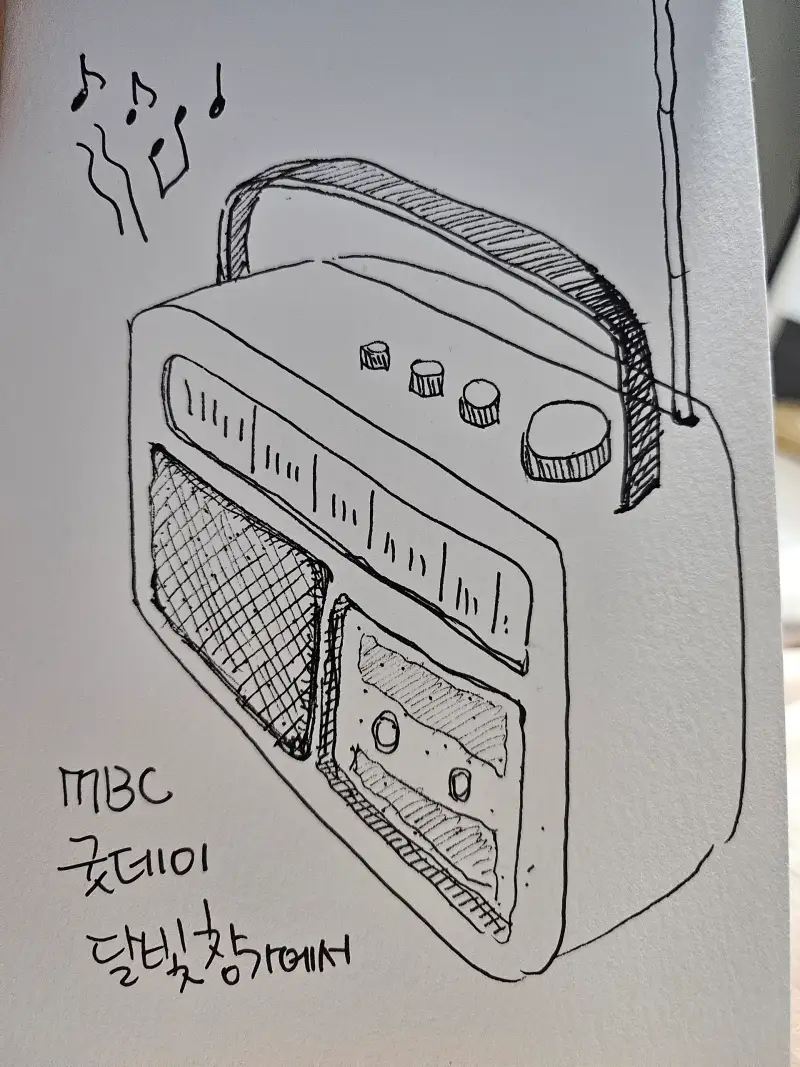 MBC
굿데이
달빛창가에서